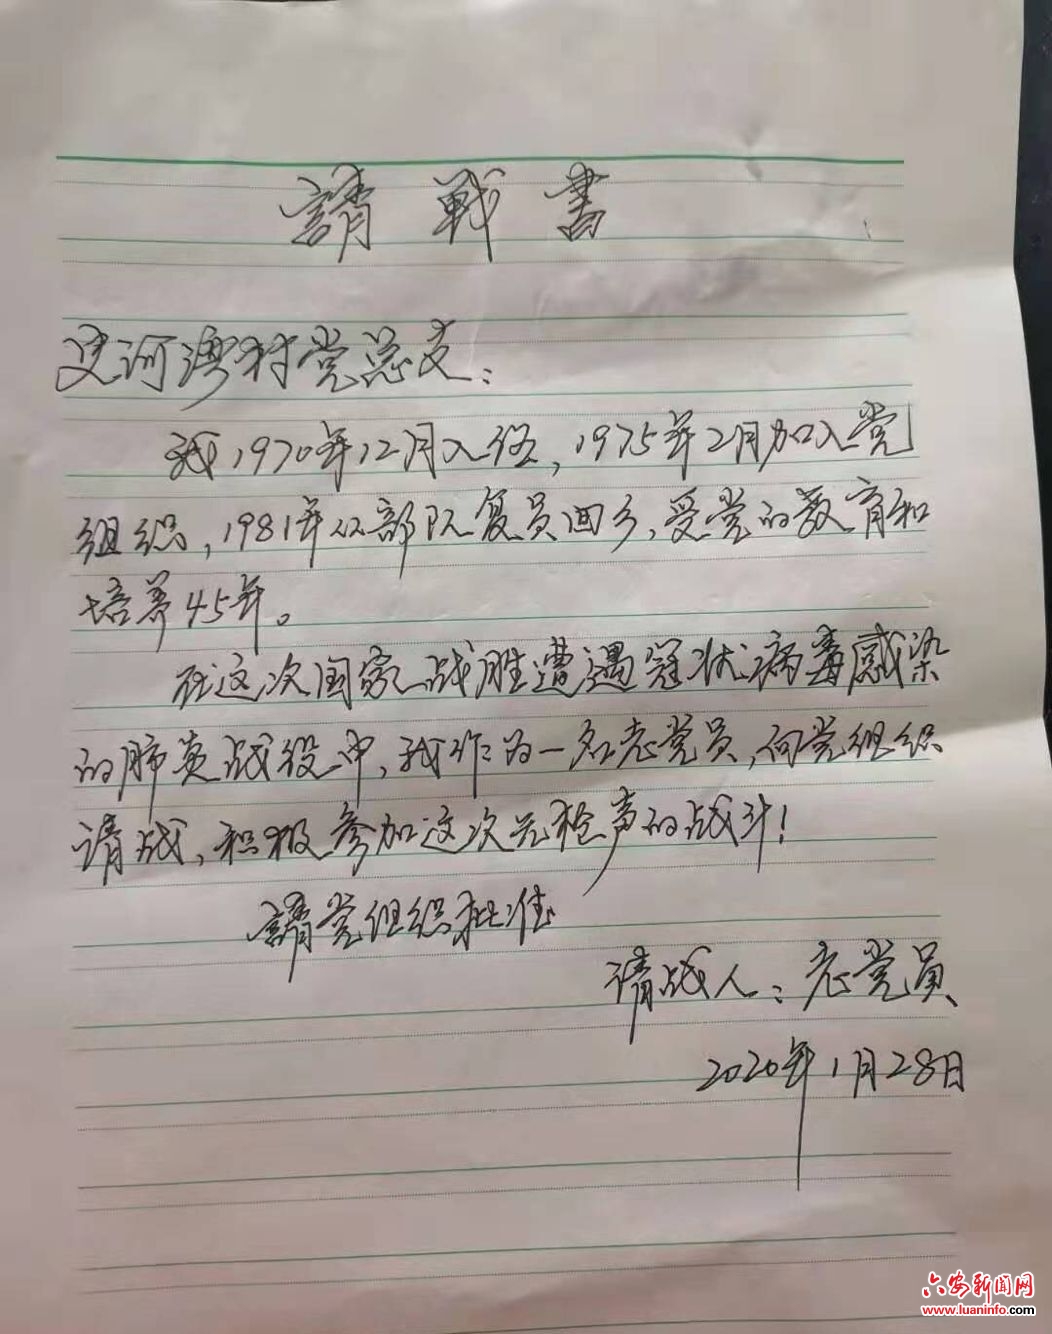 請戰書
史河湾村党总支：
我1970年12月入伍，1975年2月加入党
组织，1981年从部队复员回乡，受党的教育和
培养45年。
在这次国家战胜遭遇冠状病毒感染
的肺炎战役中，我作为一名老党员，向党组织
请战，积极参加这次无枪声的战斗！
請党组织批准
请战人：老党员
2020年1月28日
六安新闻网
www.luaninfo.com